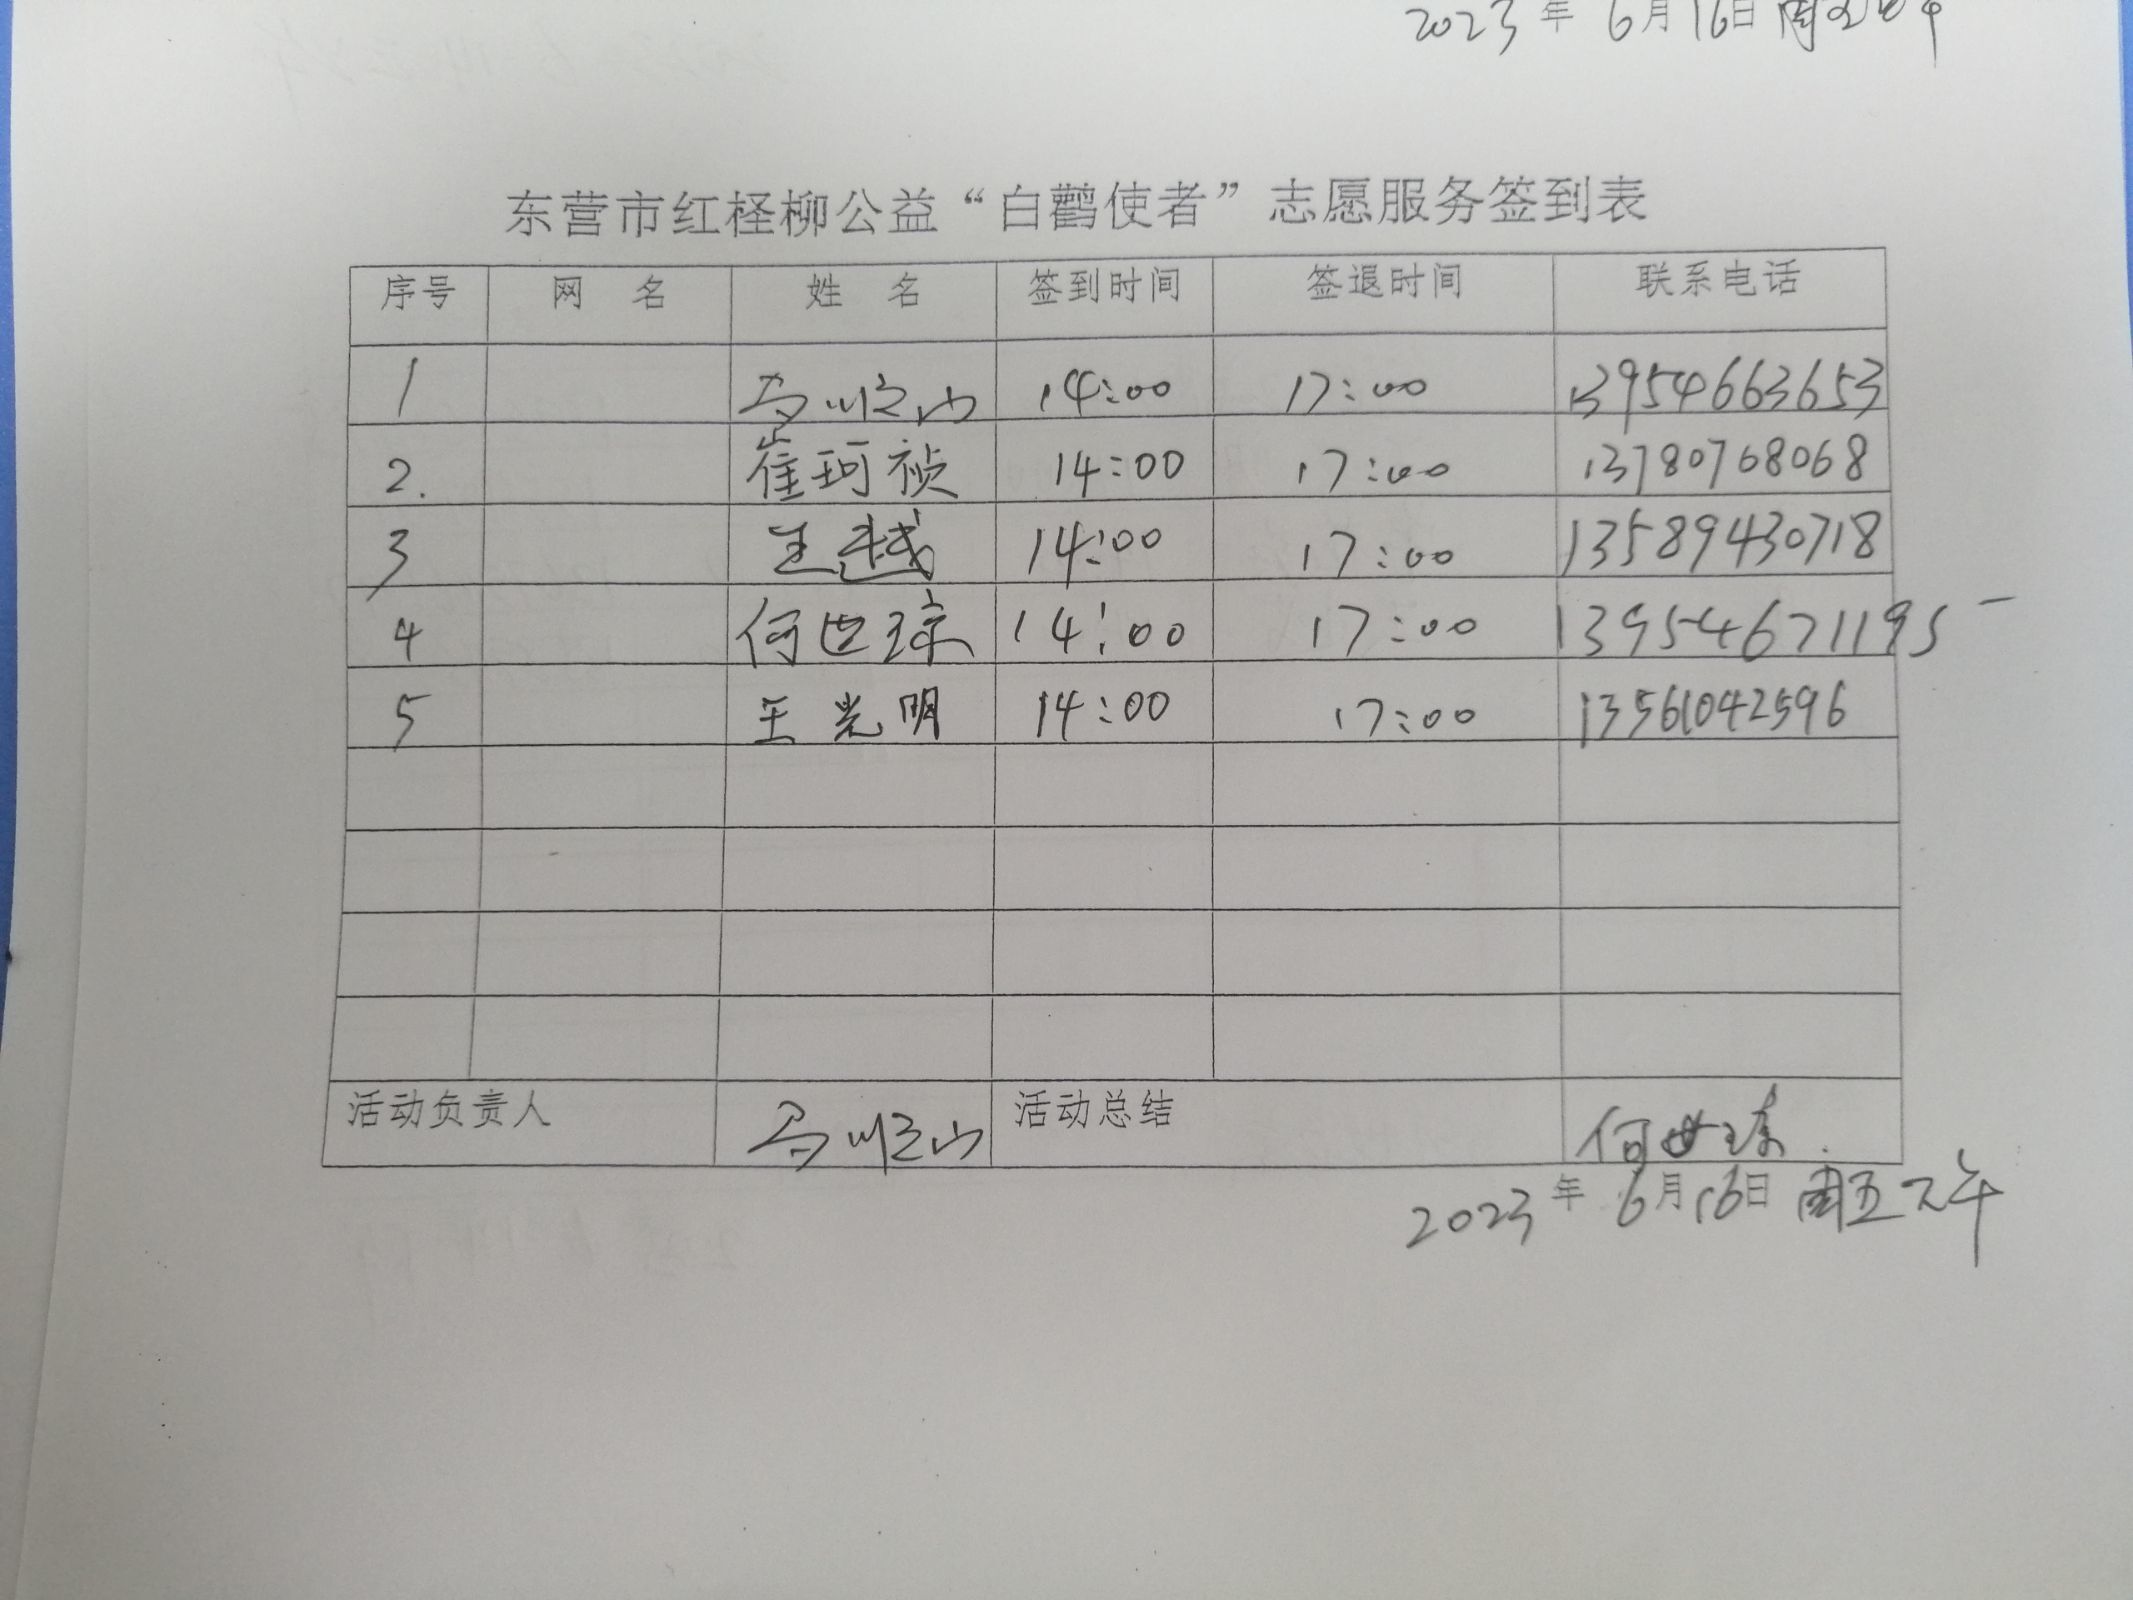 2023年6月16日周五上午
东营市红柽柳公益“白鹳使者”志愿服务签到表
序号 网 名 姓 名 签到时间 签退时间 联系电话
1 马顺山 14:00 17:00 13954663653
2. 崔珂祯 14:00 17:00 13780768068
3 王越 14:00 17:00 13589430718
4 何世琼 14:00 17:00 13954671195
5 王光明 14:00 17:00 13561042596
活动负责人 马顺山 活动总结 何世琼.
2023年6月16日周五下午